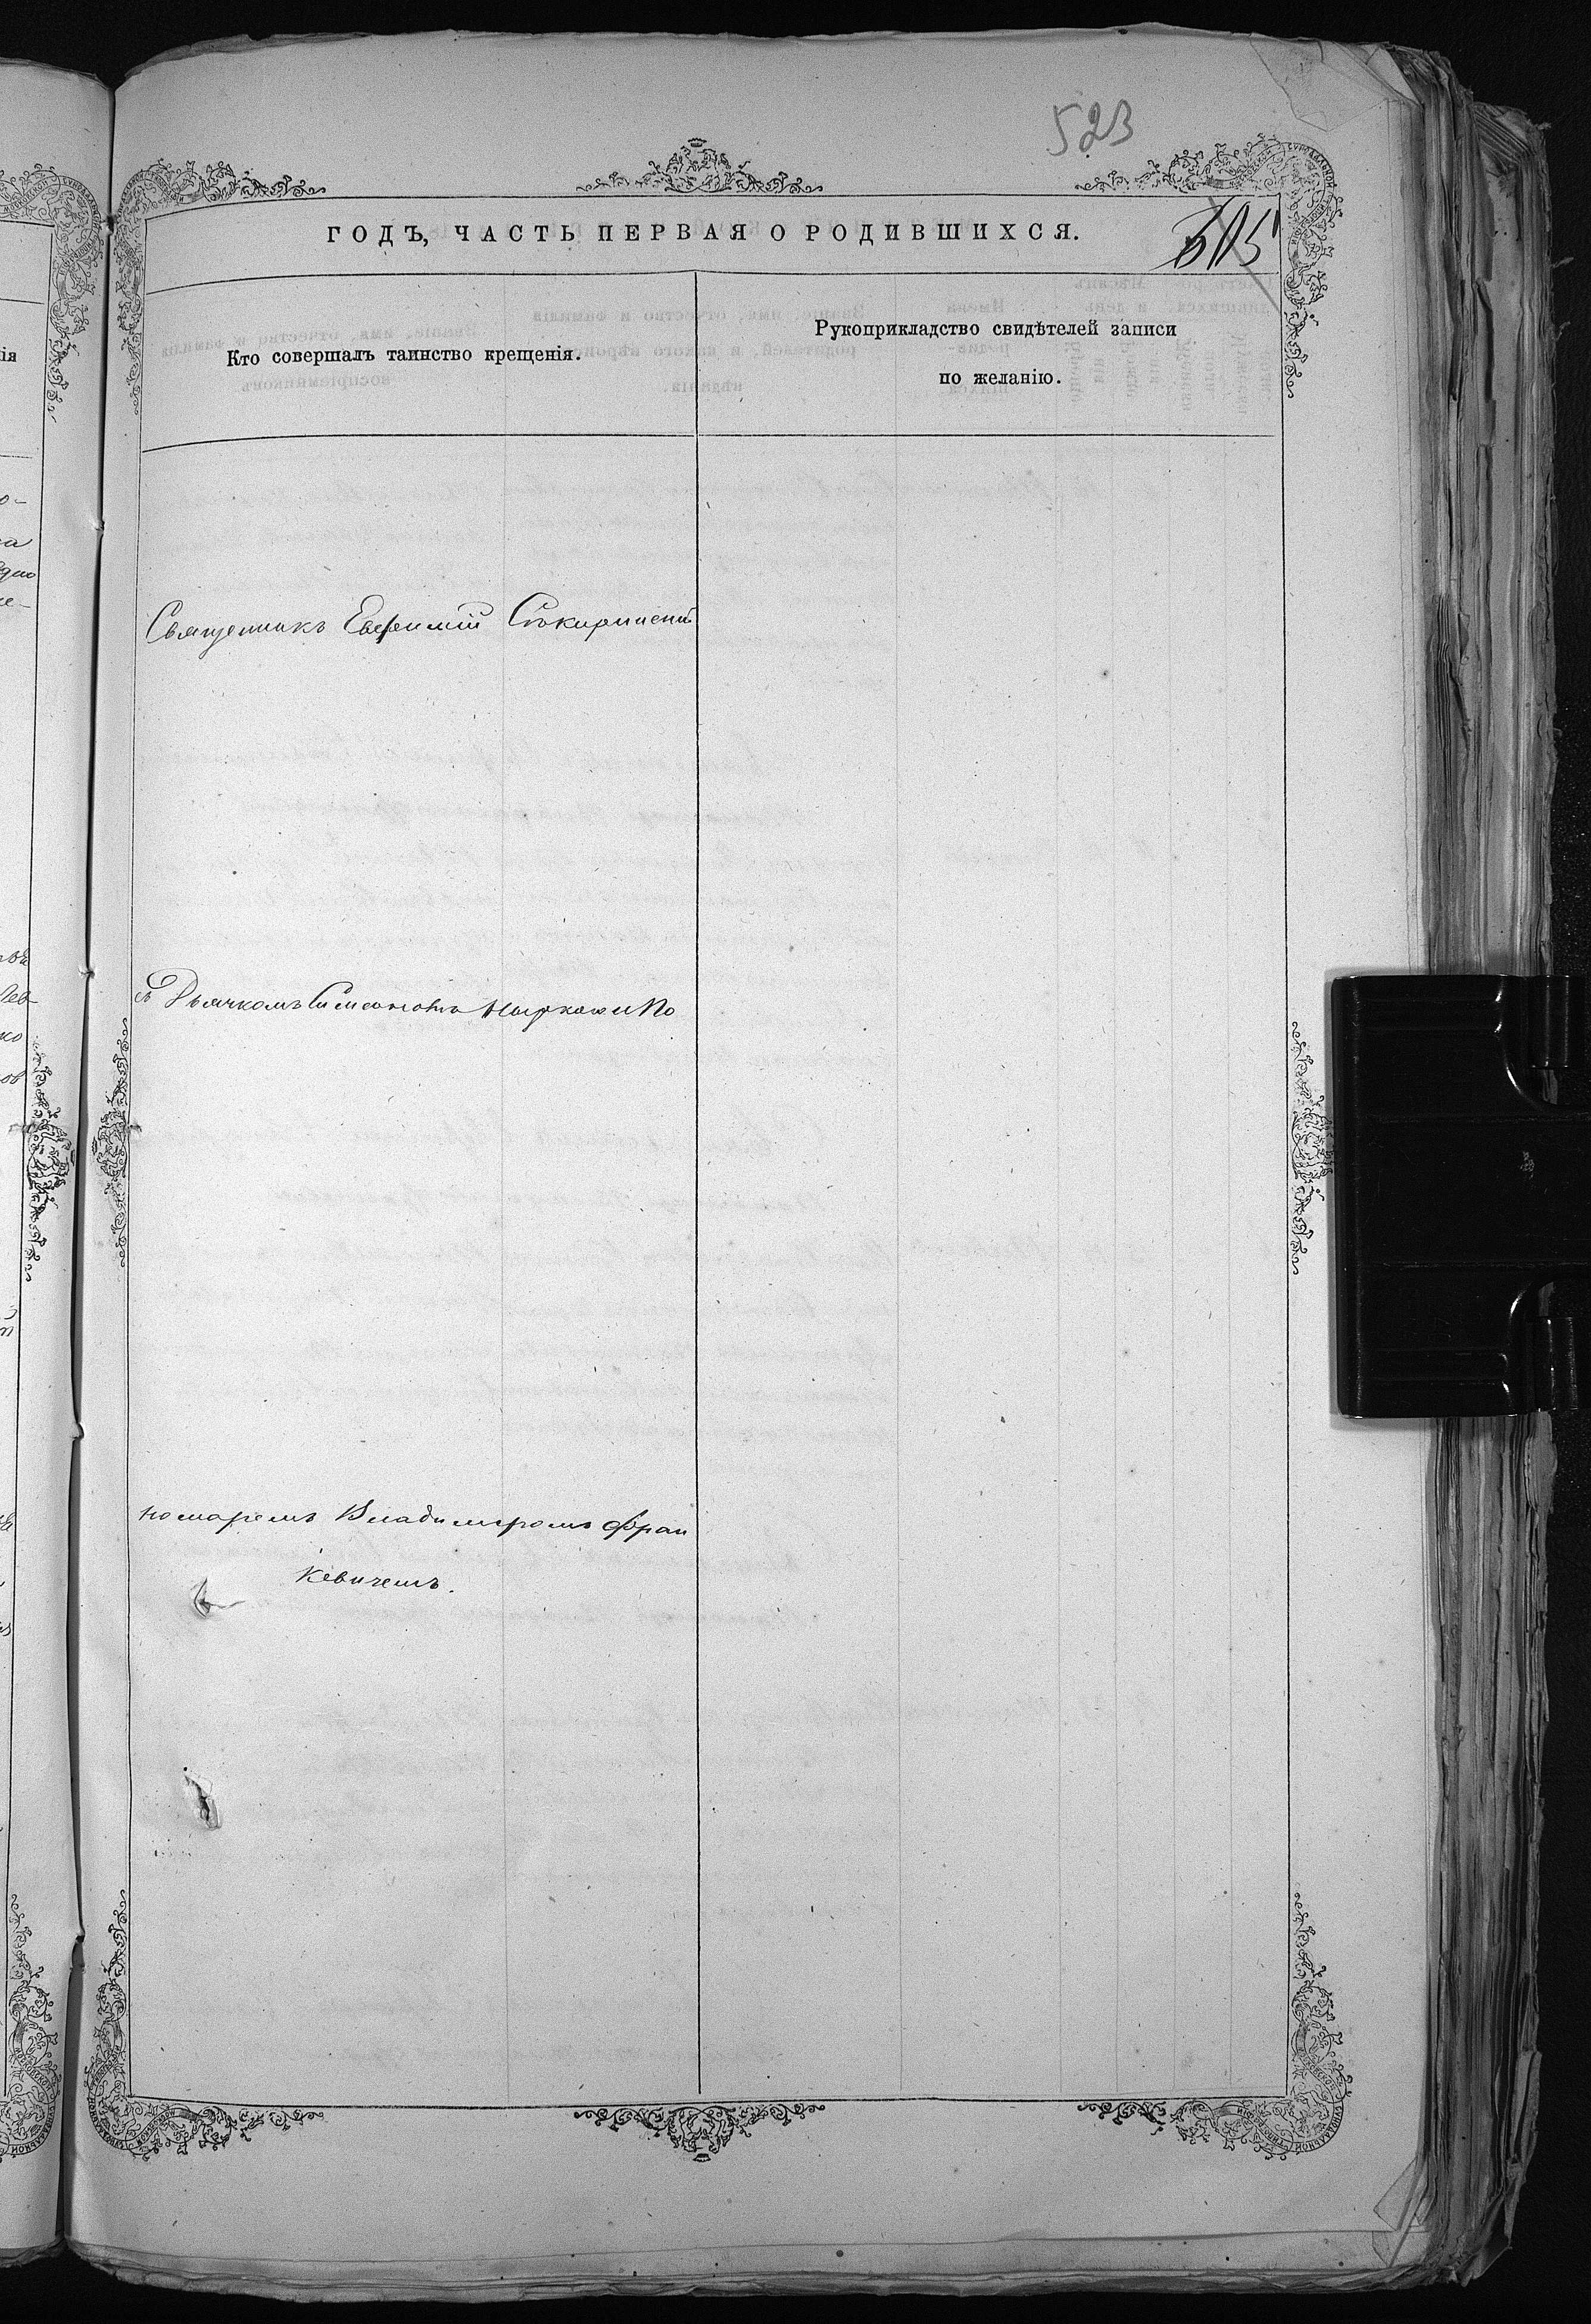 523
ГОДЪ, ЧАСТЬ ПЕРВАЯ О РОДИВШИХСЯ.
Кто совершалъ таинство крещенія.
Рукоприкладство свидѣтелей записи
по желанію.
Священникъ Евфимій
съ Дьячкомъ Симеономъ
помаремъ Владимиромъ Фран
кевичемъ.